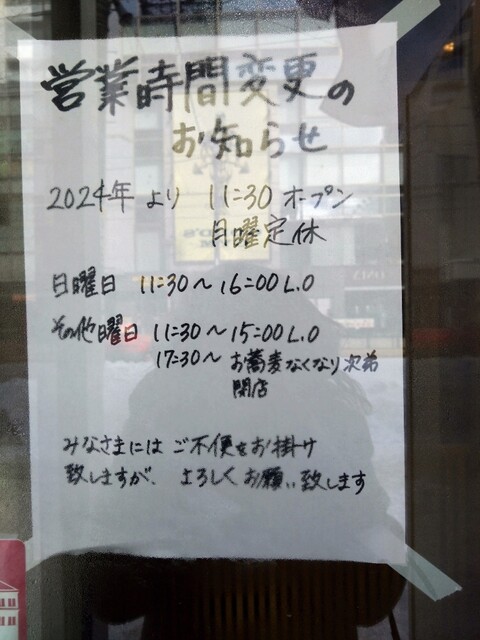 営業時間変更の
お知らせ
2024年 より 11:30 オープン
月曜定休
日曜日 11:30〜16:00 L.O
その他曜日 11:30〜15:00 L.O
17:30〜 お蕎麦なくなり次第
閉店
みなさまには ご不便をお掛け
致しますが、よろしくお願い致します